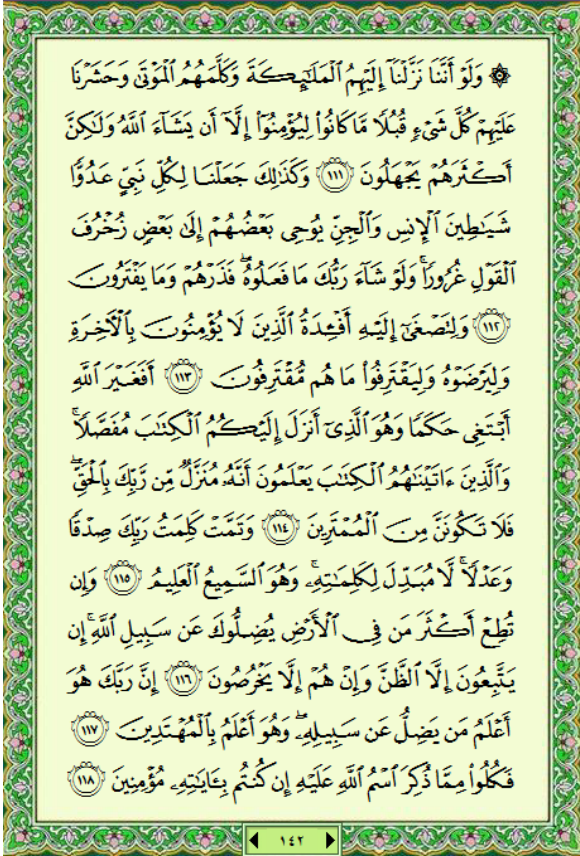 ۞ وَلَوْ أَنَّنَا نَزَّلْنَآ إِلَيْهِمُ ٱلْمَلَٰٓئِكَةَ وَكَلَّمَهُمُ ٱلْمَوْتَىٰ وَحَشَرْنَا
عَلَيْهِمْ كُلَّ شَىْءٍ قُبُلًا مَّا كَانُوا۟ لِيُؤْمِنُوٓا۟ إِلَّآ أَن يَشَآءَ ٱللَّهُ وَلَٰكِنَّ
أَكْثَرَهُمْ يَجْهَلُونَ ١١١ وَكَذَٰلِكَ جَعَلْنَا لِكُلِّ نَبِىٍّ عَدُوًّا
شَيَٰطِينَ ٱلْإِنسِ وَٱلْجِنِّ يُوحِى بَعْضُهُمْ إِلَىٰ بَعْضٍ زُخْرُفَ
ٱلْقَوْلِ غُرُورًا ۚ وَلَوْ شَآءَ رَبُّكَ مَا فَعَلُوهُ ۖ فَذَرْهُمْ وَمَا يَفْتَرُونَ
١١٢ وَلِتَصْغَىٰٓ إِلَيْهِ أَفْـِٔدَةُ ٱلَّذِينَ لَا يُؤْمِنُونَ بِٱلْءَاخِرَةِ
وَلِيَرْضَوْهُ وَلِيَقْتَرِفُوا۟ مَا هُم مُّقْتَرِفُونَ ١١٣ أَفَغَيْرَ ٱللَّهِ
أَبْتَغِى حَكَمًا وَهُوَ ٱلَّذِىٓ أَنزَلَ إِلَيْكُمُ ٱلْكِتَٰبَ مُفَصَّلًا ۚ
وَٱلَّذِينَ ءَاتَيْنَٰهُمُ ٱلْكِتَٰبَ يَعْلَمُونَ أَنَّهُۥ مُنَزَّلٌ مِّن رَّبِّكَ بِٱلْحَقِّ ۖ
فَلَا تَكُونَنَّ مِنَ ٱلْمُمْتَرِينَ ١١٤ وَتَمَّتْ كَلِمَتُ رَبِّكَ صِدْقًا
وَعَدْلًا ۚ لَّا مُبَدِّلَ لِكَلِمَٰتِهِۦ ۚ وَهُوَ ٱلسَّمِيعُ ٱلْعَلِيمُ ١١٥ وَإِن
تُطِعْ أَكْثَرَ مَن فِى ٱلْأَرْضِ يُضِلُّوكَ عَن سَبِيلِ ٱللَّهِ ۚ إِن
يَتَّبِعُونَ إِلَّا ٱلظَّنَّ وَإِنْ هُمْ إِلَّا يَخْرُصُونَ ١١٦ إِنَّ رَبَّكَ هُوَ
أَعْلَمُ مَن يَضِلُّ عَن سَبِيلِهِۦ ۖ وَهُوَ أَعْلَمُ بِٱلْمُهْتَدِينَ ١١٧
فَكُلُوا۟ مِمَّا ذُكِرَ ٱسْمُ ٱللَّهِ عَلَيْهِ إِن كُنتُم بِـَٔايَٰتِهِۦ مُؤْمِنِينَ ١١٨
١٤٢